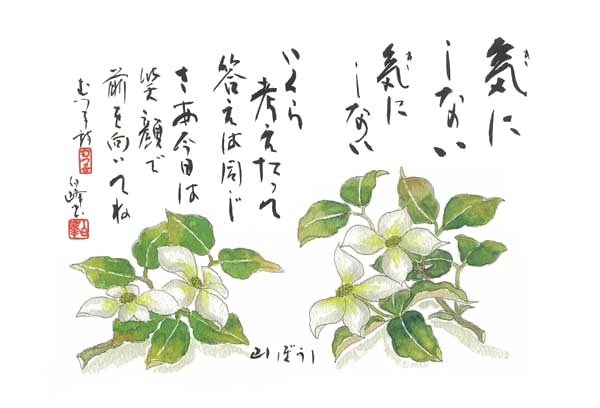 気に
しない
気に
しない
いくら
考えたって
答えは同じ
さあ今日は
笑顔で
前を向いてね
山ぼうし